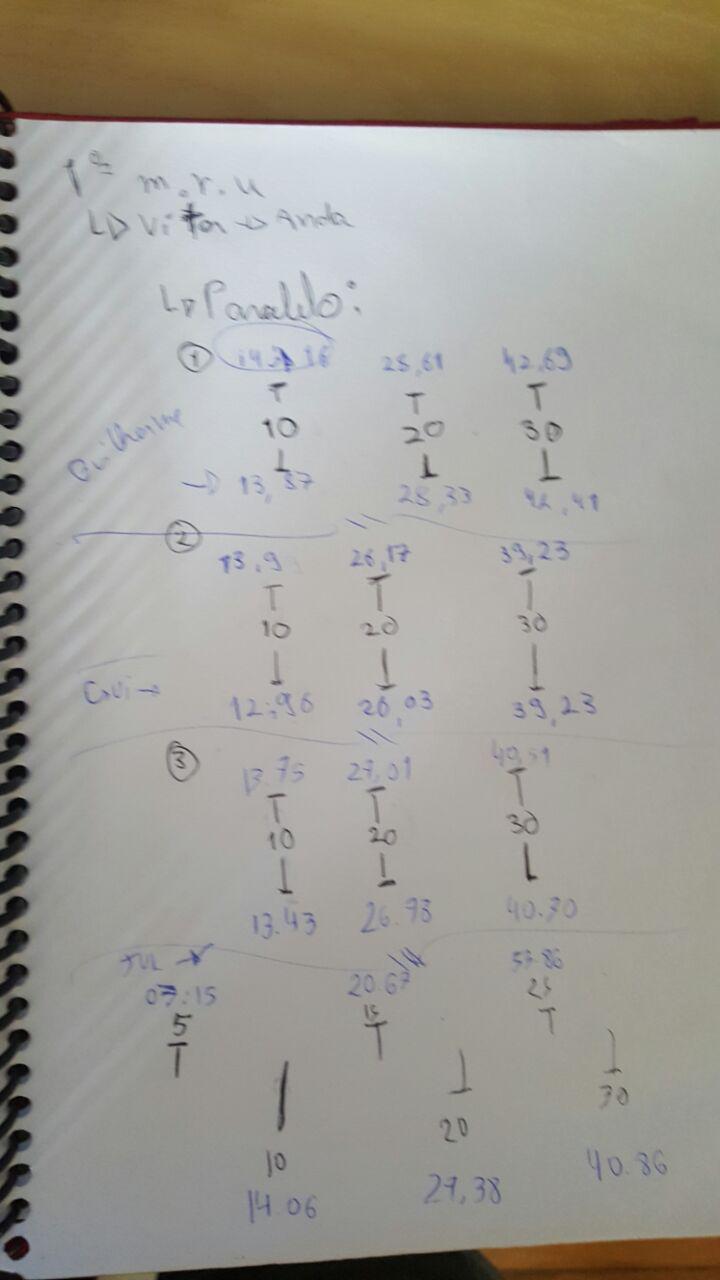 1ª m.r.u
L> Vitor -> Anda
L> Paralelo:
① 28,61 42,69
T T T
10 20 30
Guilherme
-> 13,87 28,33 42,41
②
13.9 26,17 39,23
T T T
10 20 30
Gui->
12:96 26,03 39,23
③
13.75 27,01 40,51
T T T
10 20 30
13.43 26.93 40.30
07:15 20.67
5 15 25
T T T
10 20 30
14.06 27,38 40.86